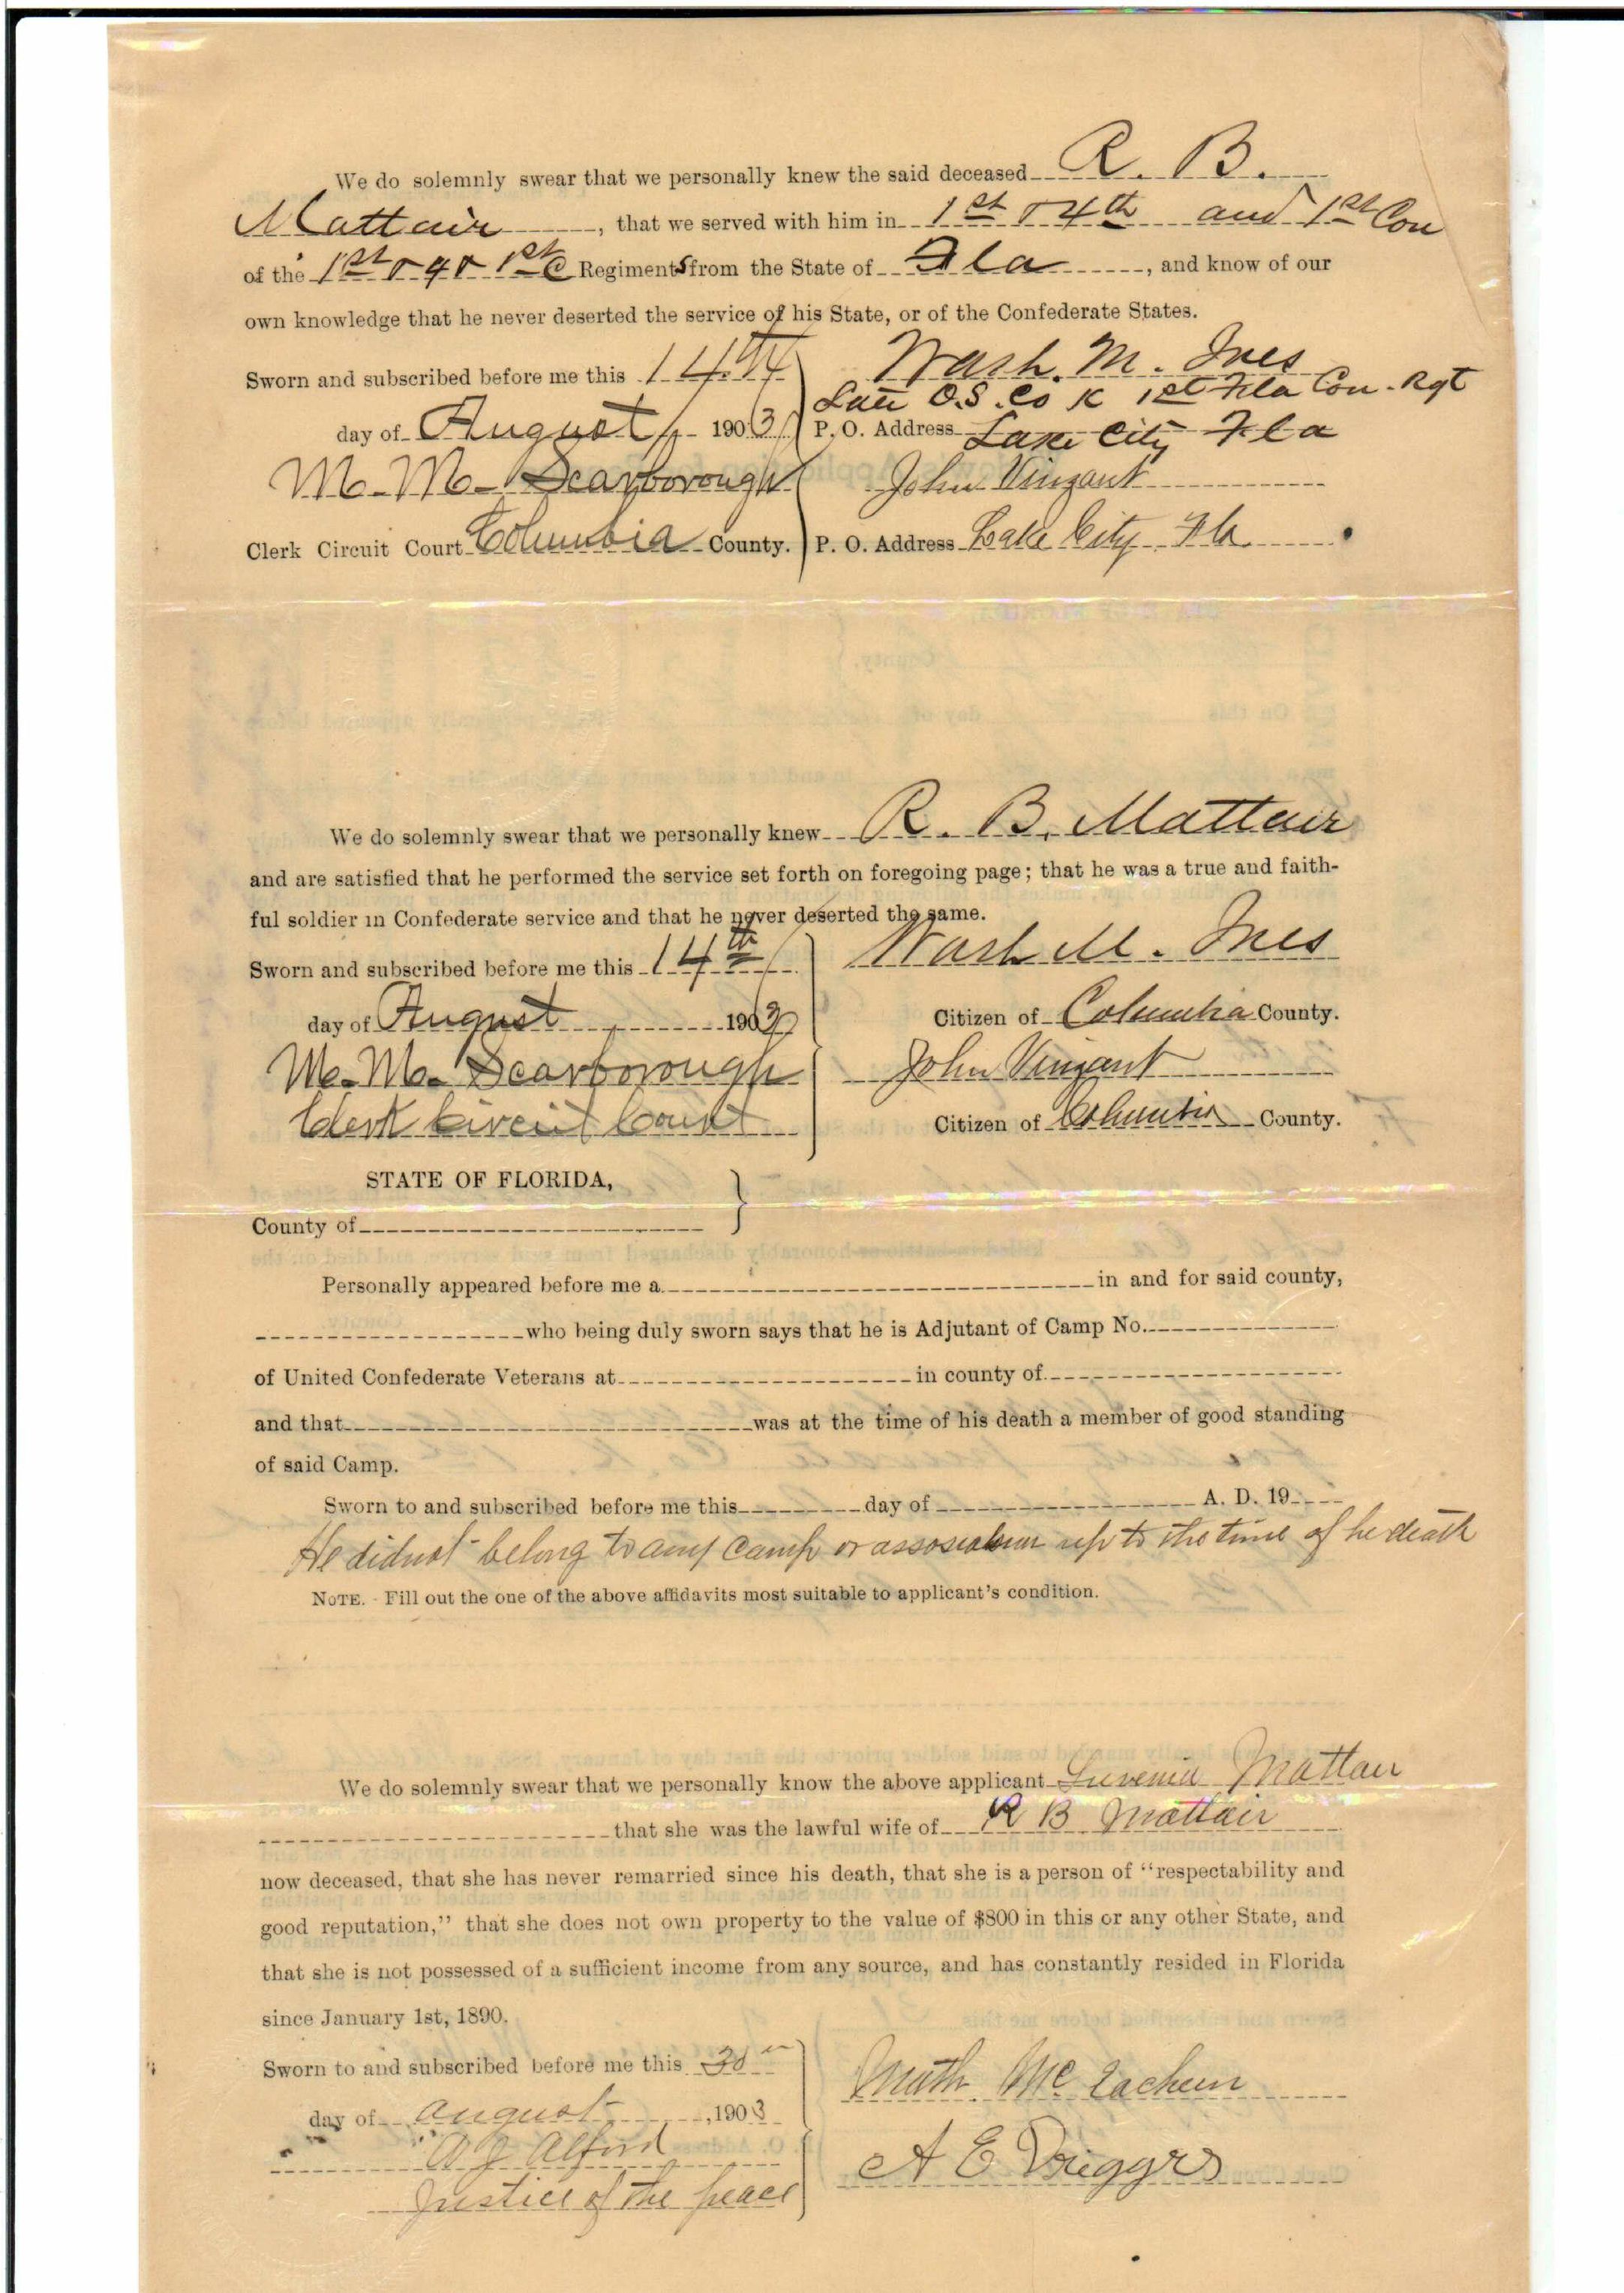 We do solemnly swear that we personally knew the said deceased R. B.
Mattair, that we served with him in 1st & 4th and 1st Con
of the 1st & 4 & 1st C Regiments from the State of Fla, and know of our
own knowledge that he never deserted the service of his State, or of the Confederate States.
Sworn and subscribed before me this 14th
day of August 1903
M. M. Scarborough
Clerk Circuit Court Columbia County.
Wash. M. Ives
Late O.S. Co K 1st Fla Con. Rgt
P. O. Address Lake City Fla
John Vinzant
P. O. Address Lake City Fla
We do solemnly swear that we personally knew R. B. Mattair
and are satisfied that he performed the service set forth on foregoing page; that he was a true and faith-
ful soldier in Confederate service and that he never deserted the same.
Sworn and subscribed before me this 14th
day of August 1903
M. M. Scarborough
Clerk Circuit Court
Wash M. Ives
Citizen of Columbia County.
John Vinzant
Citizen of Columbia County.
STATE OF FLORIDA,
County of
Personally appeared before me a in and for said county,
who being duly sworn says that he is Adjutant of Camp No.
of United Confederate Veterans at in county of
and that was at the time of his death a member of good standing
of said Camp.
Sworn to and subscribed before me this day of A. D. 19
He did not belong to any Camp or up to the time of he death
NOTE. - Fill out the one of the above affidavits most suitable to applicant's condition.
We do solemnly swear that we personally know the above applicant Luvenia Mattair
that she was the lawful wife of R B Mattair
now deceased, that she has never remarried since his death, that she is a person of "respectability and
good reputation," that she does not own property to the value of $800 in this or any other State, and
that she is not possessed of a sufficient income from any source, and has constantly resided in Florida
since January 1st, 1890.
Sworn to and subscribed before me this 30
day of August, 1903
A J Alford
Justice of the peace
Mc Eachern
A E